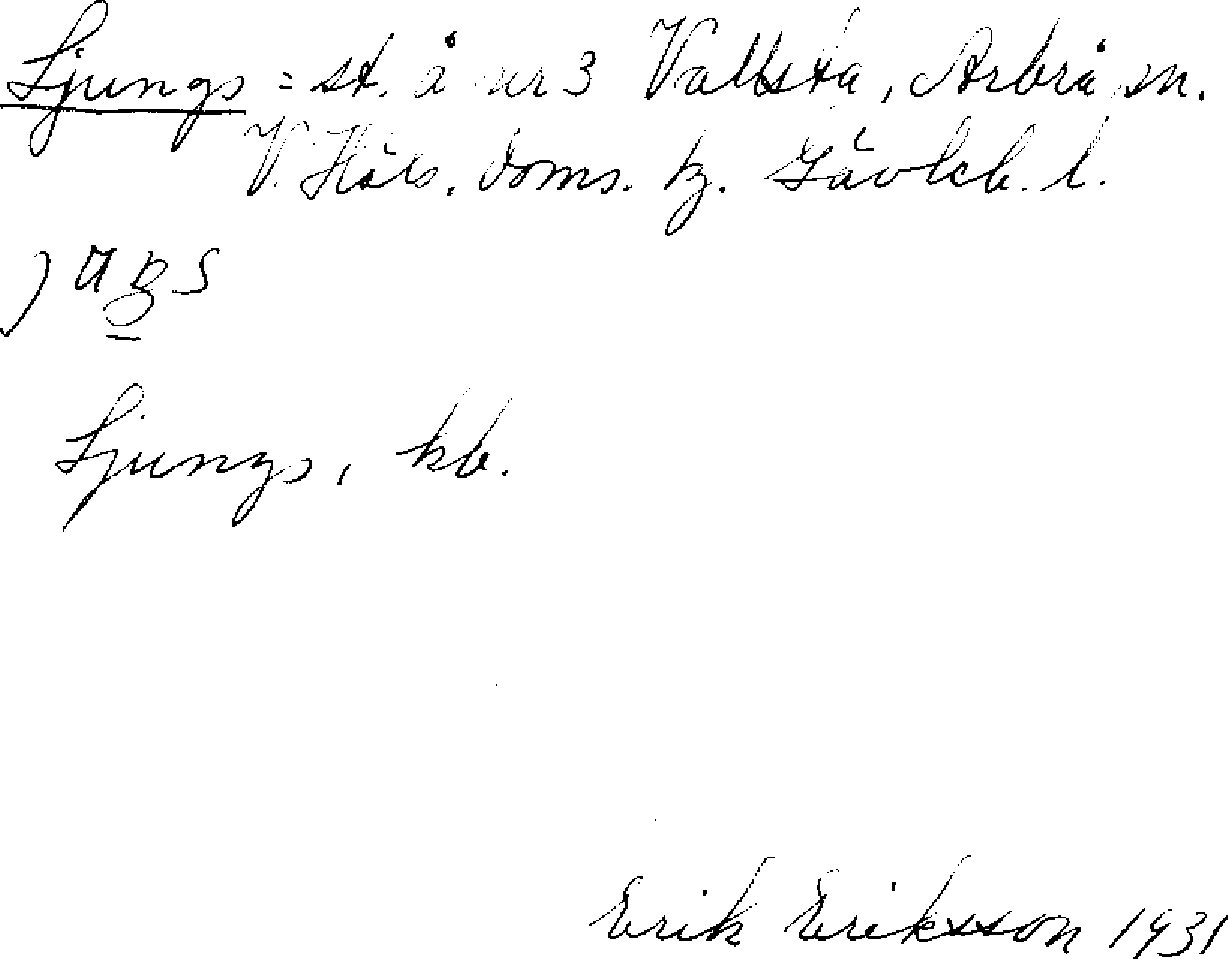 Ljungs = st. å nr 3 Vallsta, Arbrå sn.
V. Häls. doms. hg. Gävleb. l.
Ljungs, kb.
Erik Eriksson 1931